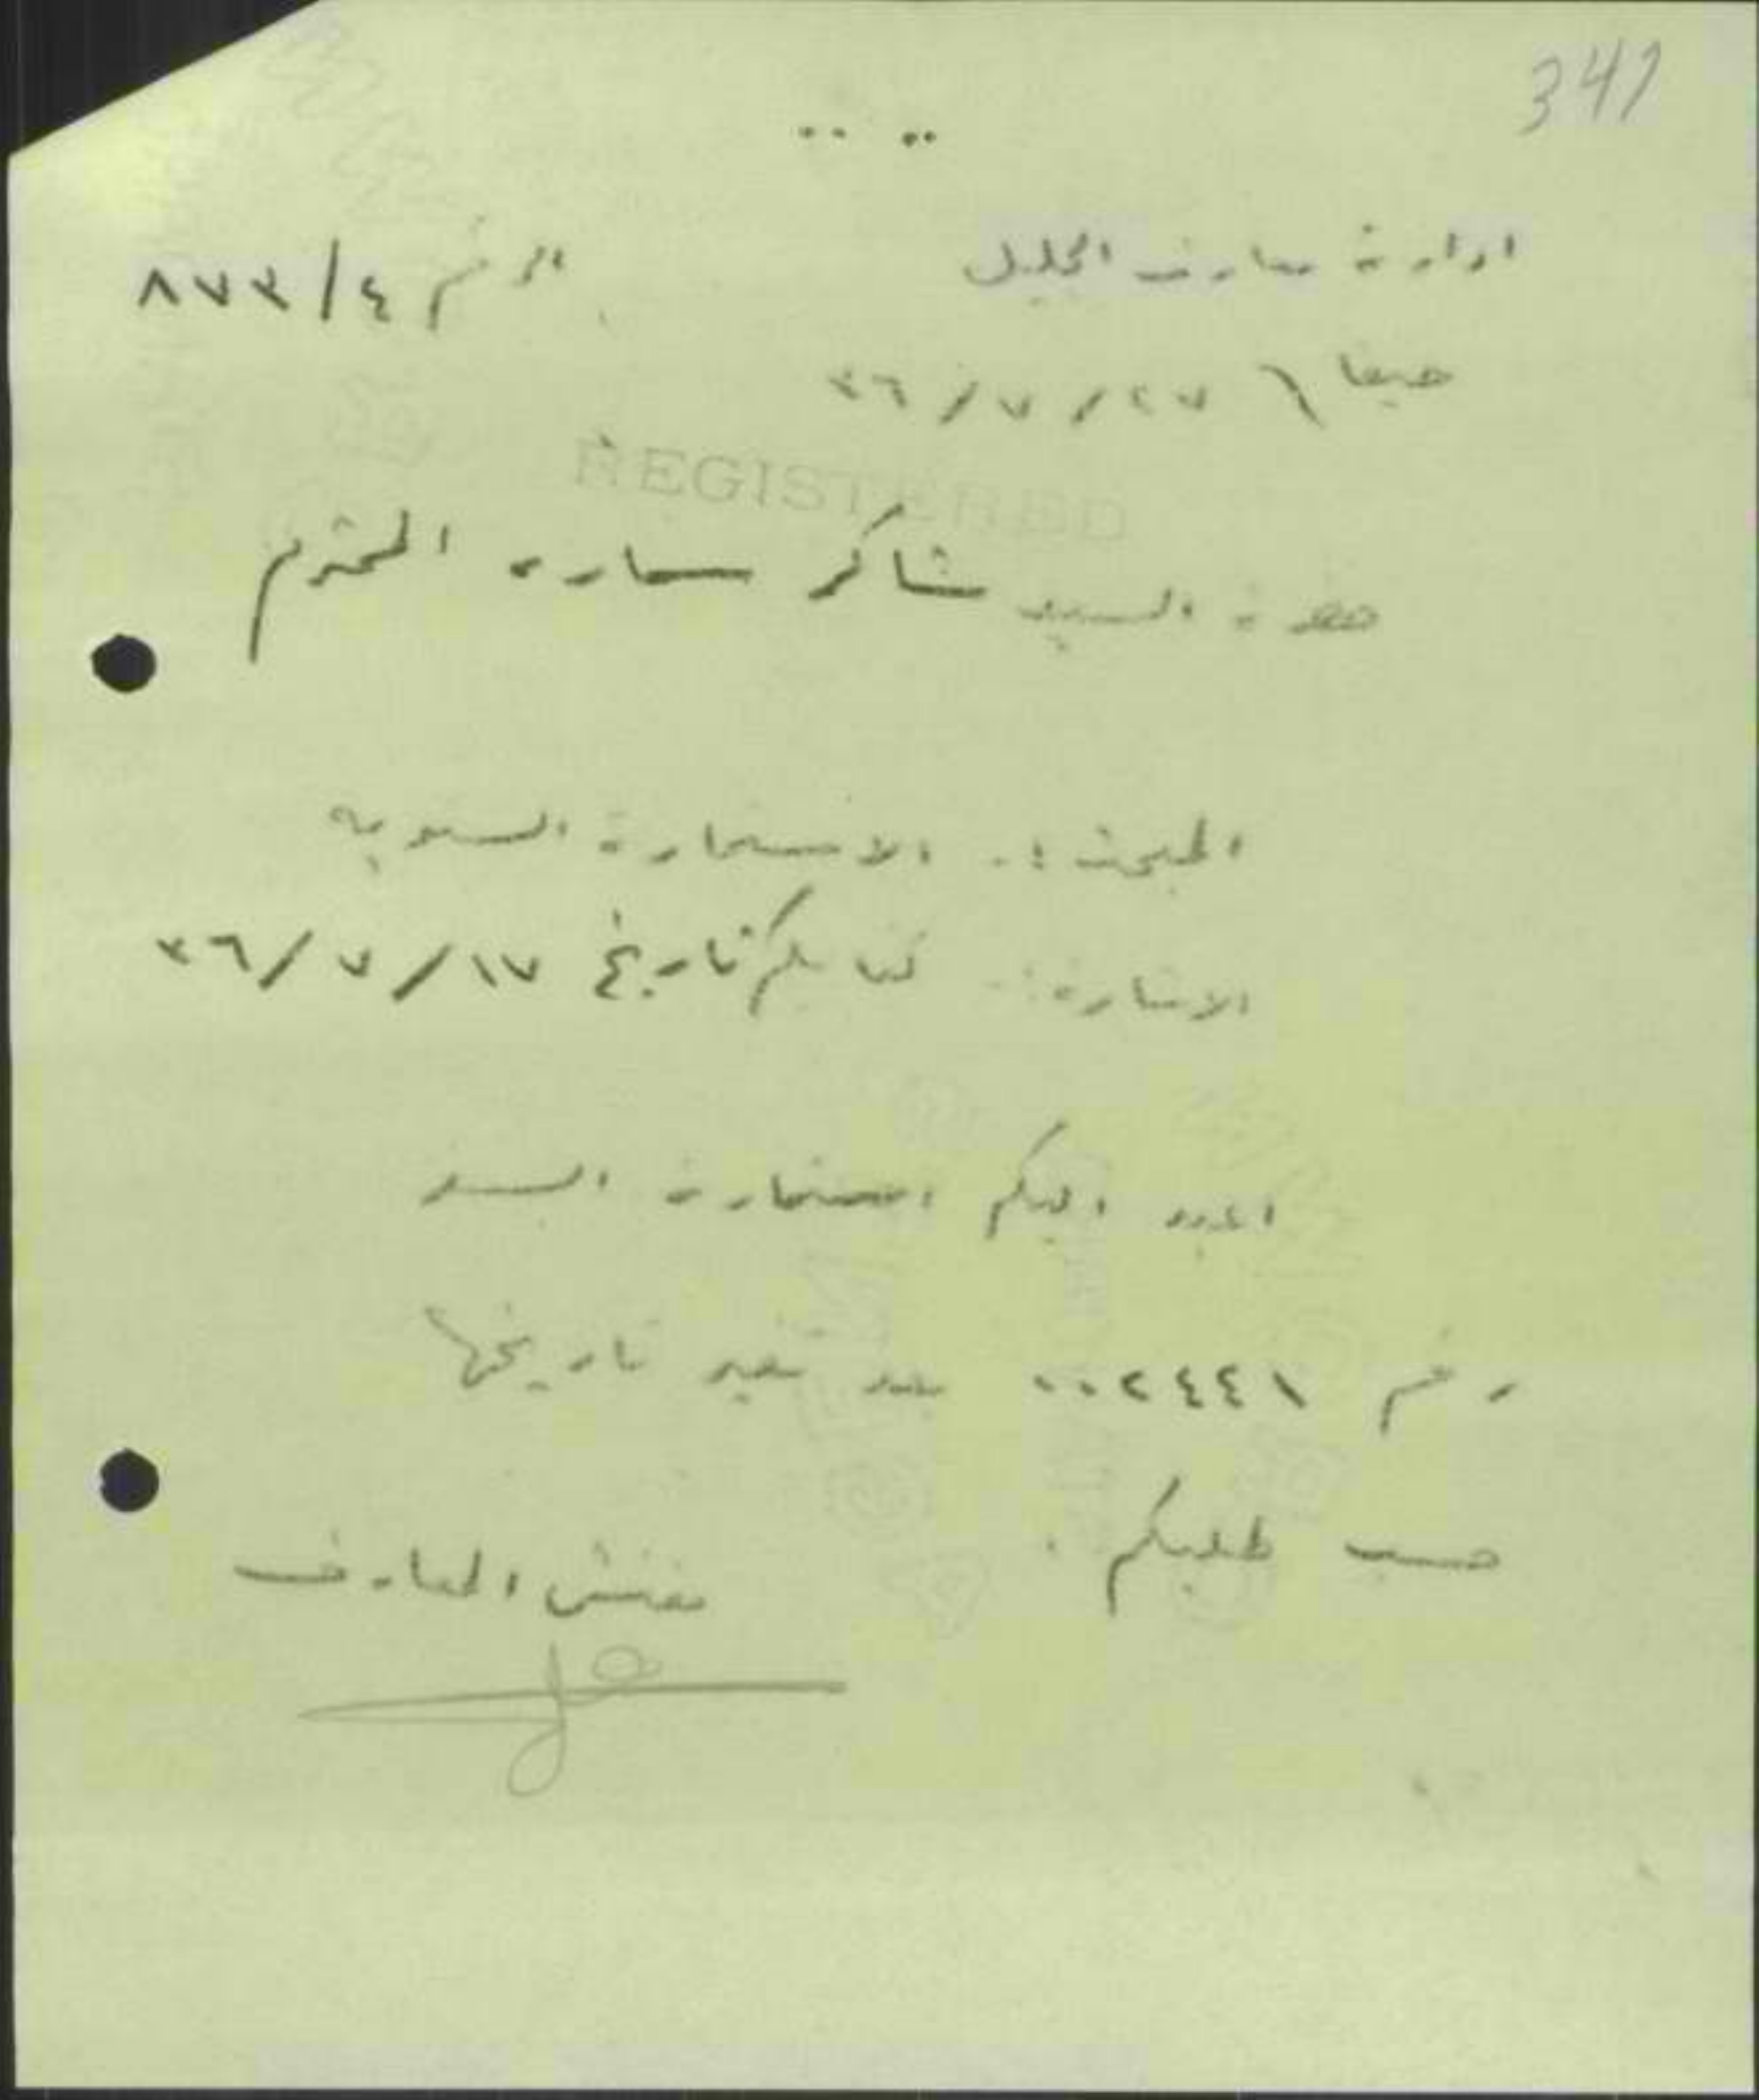 341
ادارة معارف الجليل
الرقم ٤/٨٧٣
حيفا ٢٧/٧/٣٦
REGISTERED
حضرة السيد شاكر سماره المحترم
المبحث :- الاستمارة السنويه
الاشارة :- كتابكم تاريخ ١٧/٧/٣٦
اعيد اليكم استمارة السيد
رقم ٠٠٢٤٤١ بعد تغير تاريخها
حسب طلبكم .
مفتش المعارف